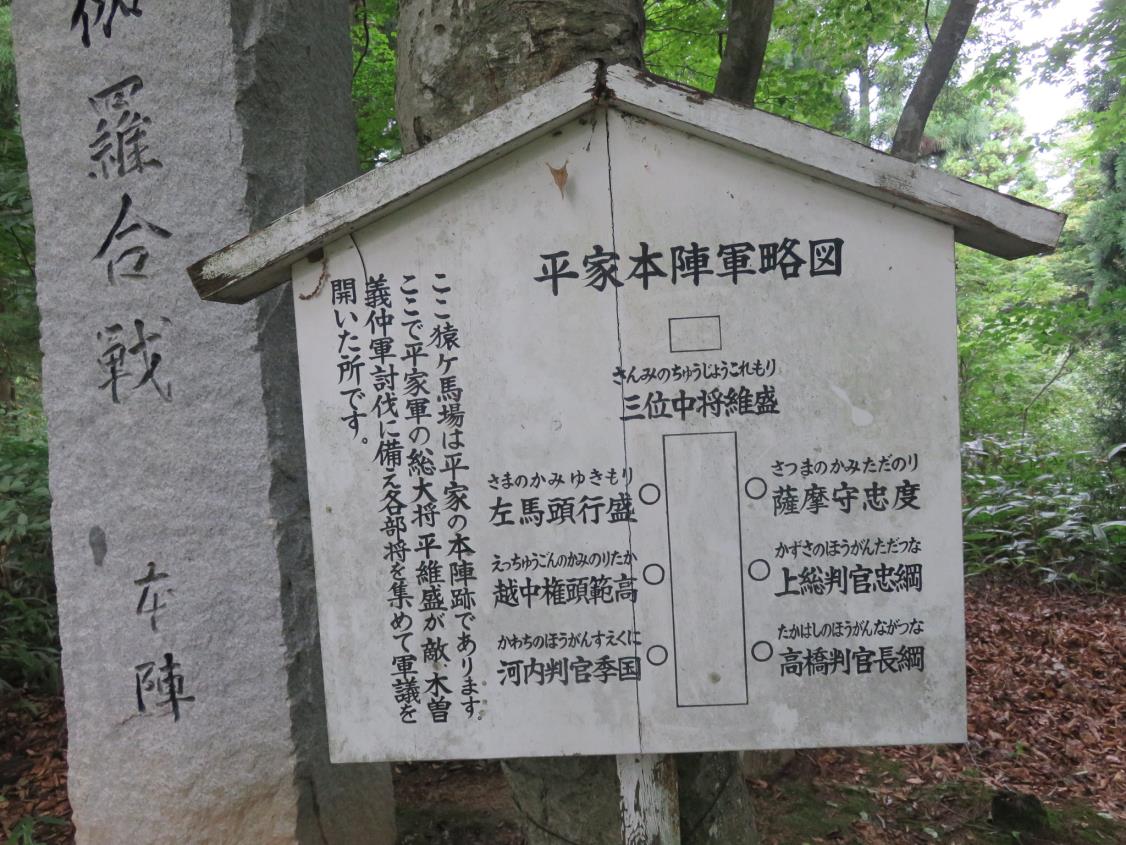 伽羅合戦 本陣
平家本陣軍略図
さんみのちゅうじょうこれもり
三位中将維盛
さつまのかみただのり
薩摩守忠度
かずさのほうがんただつな
上総判官忠綱
たかはしのほうがんながつな
高橋判官長綱
さまのかみゆきもり
左馬頭行盛
えっちゅうごんのかみのりたか
越中権頭範高
かわちのほうがんすえくに
河内判官季国
ここ猿ケ馬場は平家の本陣跡であります。
ここで平家軍の総大将平維盛が敵、木曽
義仲軍討伐に備え各部将を集めて軍議を
開いた所です。